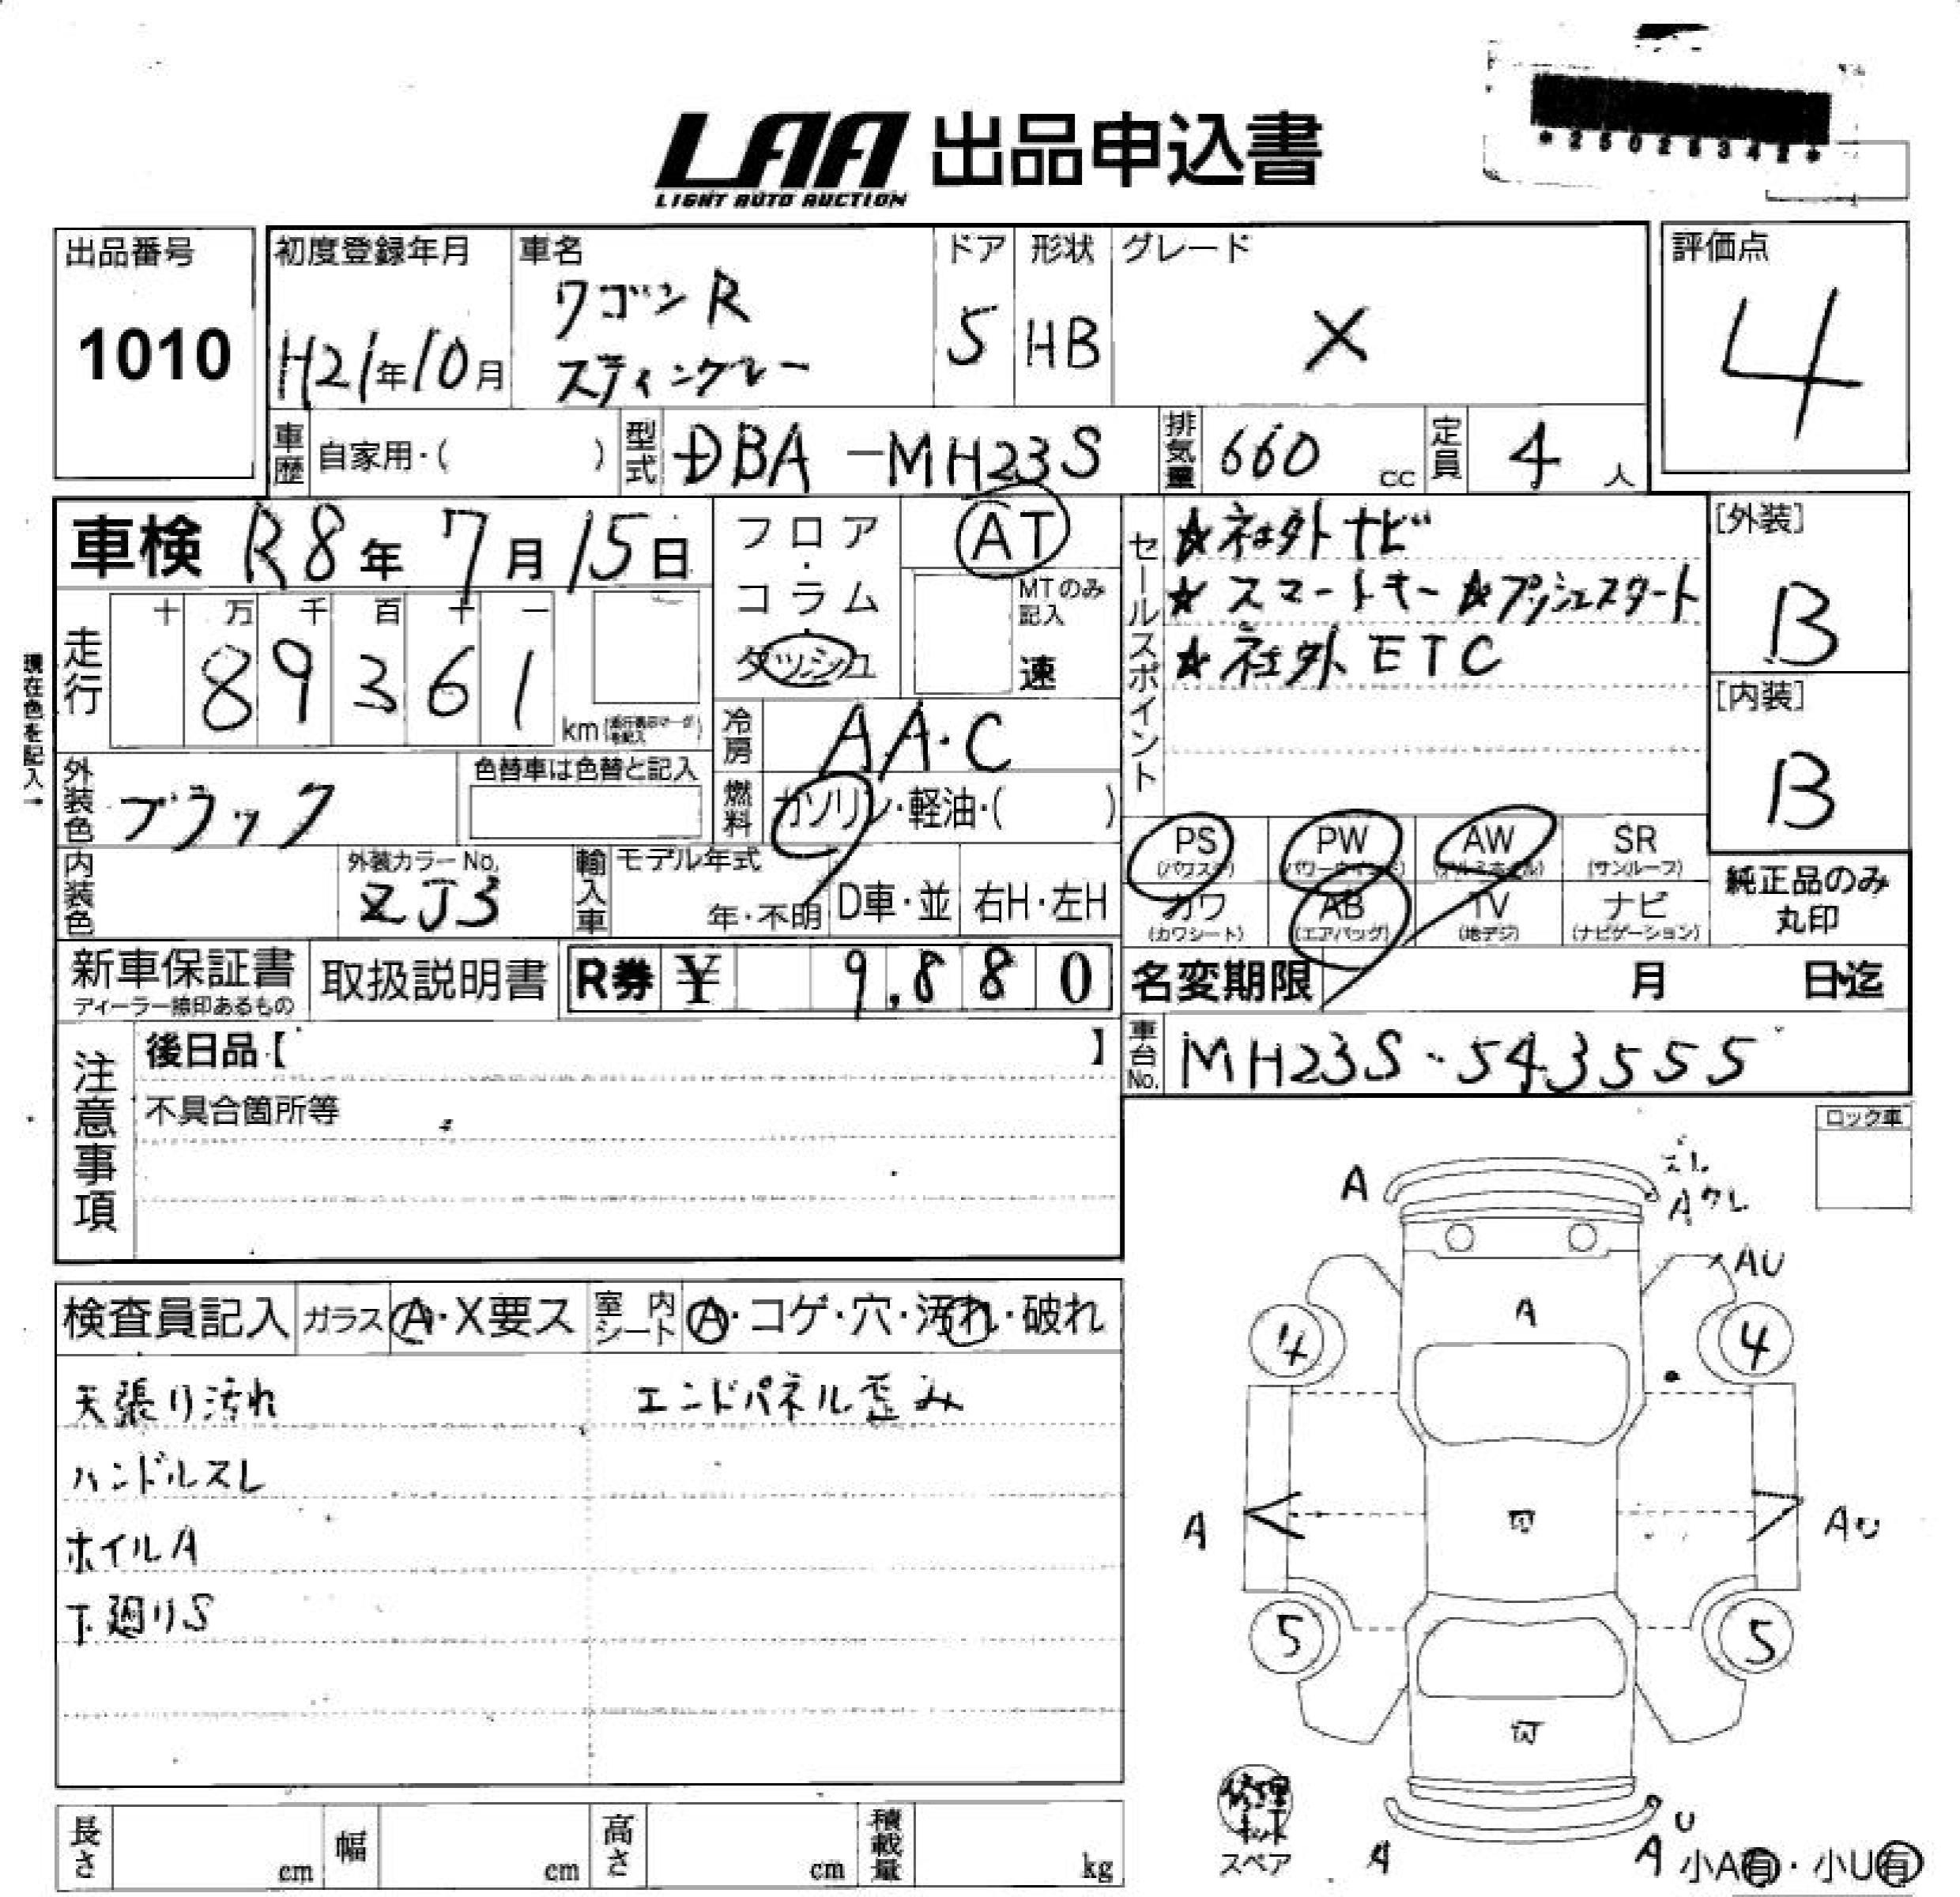 LAA 出品申込書
LIGHT AUTO AUCTION
*25028342*
出品番号
1010
初度登録年月
H21年10月
車名
ワゴンR
スティングレー
ドア
5
形状
HB
グレード
X
評価点
4
車歴 自家用・( )
型式 DBA-MH23S
排気量 660 cc
定員 4 人
車検 R8年7月15日
フロア・コラム・ダッシュ
AT
MTのみ記入
速
現在色を記入→
走行
十 万 千 百 十 一
8 9 3 6 1
km
冷房 AA・C
燃料 ガソリン・軽油・( )
外装色 ブラック
色替車は色替と記入
内装色
外装カラーNo.
ZJ3
輸入車
モデル年式
年・不明
D車・並
右H・左H
セールスポイント
★社外ナビ
★スマートキー ★プッシュスタート
★社外ETC
[外装]
B
[内装]
B
PS
(パワステ)
PW
(パワーウインド)
AW
(アルミホイル)
SR
(サンルーフ)
カワ
(カワシート)
AB
(エアバッグ)
TV
(地デジ)
ナビ
(ナビゲーション)
純正品のみ
丸印
新車保証書
ディーラー捺印あるもの
取扱説明書
R券 ¥ 9,880
名変期限 月 日迄
車台No. MH23S-543555
注意事項
後日品【 】
不具合箇所等
ロック車
検査員記入
ガラス A・X要ス
室内シート A・コゲ・穴・汚れ・破れ
天張り汚れ
エンドパネル歪み
ハンドルスレ
ホイルA
下廻りS
A
スレ
Aワレ
AU
A
4
4
A
AU
5
5
修理キット
スペア
A
U
A
小A有・小U有
長さ cm
幅 cm
高さ cm
積載量 kg